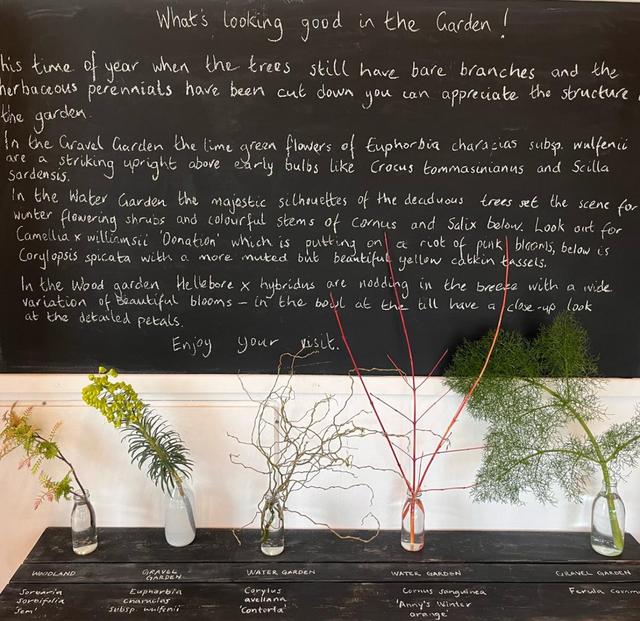 What's looking good in the Garden!
his time of year when the trees still have bare branches and the
herbaceous perennials have been cut down you can appreciate the structure
the garden.
In the Gravel Garden the lime green flowers of Euphorbia characias subsp. wulfenii
are a striking upright above early bulbs like Crocus tommasinianus and Scilla
sardensis.
In the Water Garden the majestic silhouettes of the deciduous trees set the scene for
winter flowering shrubs and colourful stems of Cornus and Salix below. Look out for
Camellia x williamsii 'Donation' which is putting on a riot of pink blooms, below is
Corylopsis spicata with a more muted but beautiful yellow catkin tassels.
In the Wood garden Hellebore x hybridus are nodding in the breeze with a wide
variation of beautiful blooms – in the bowl at the till have a close-up look
at the detailed petals.
Enjoy your visit.
WOODLAND
Sorbaria
sorbifolia
'Sem'
GRAVEL
GARDEN
Euphorbia
characias
subsp. wulfenii
WATER GARDEN
Corylus
avellana
'Contorta'
WATER GARDEN
Cornus sanguinea
'Anny's Winter
orange'
GRAVEL GARDEN
Ferula